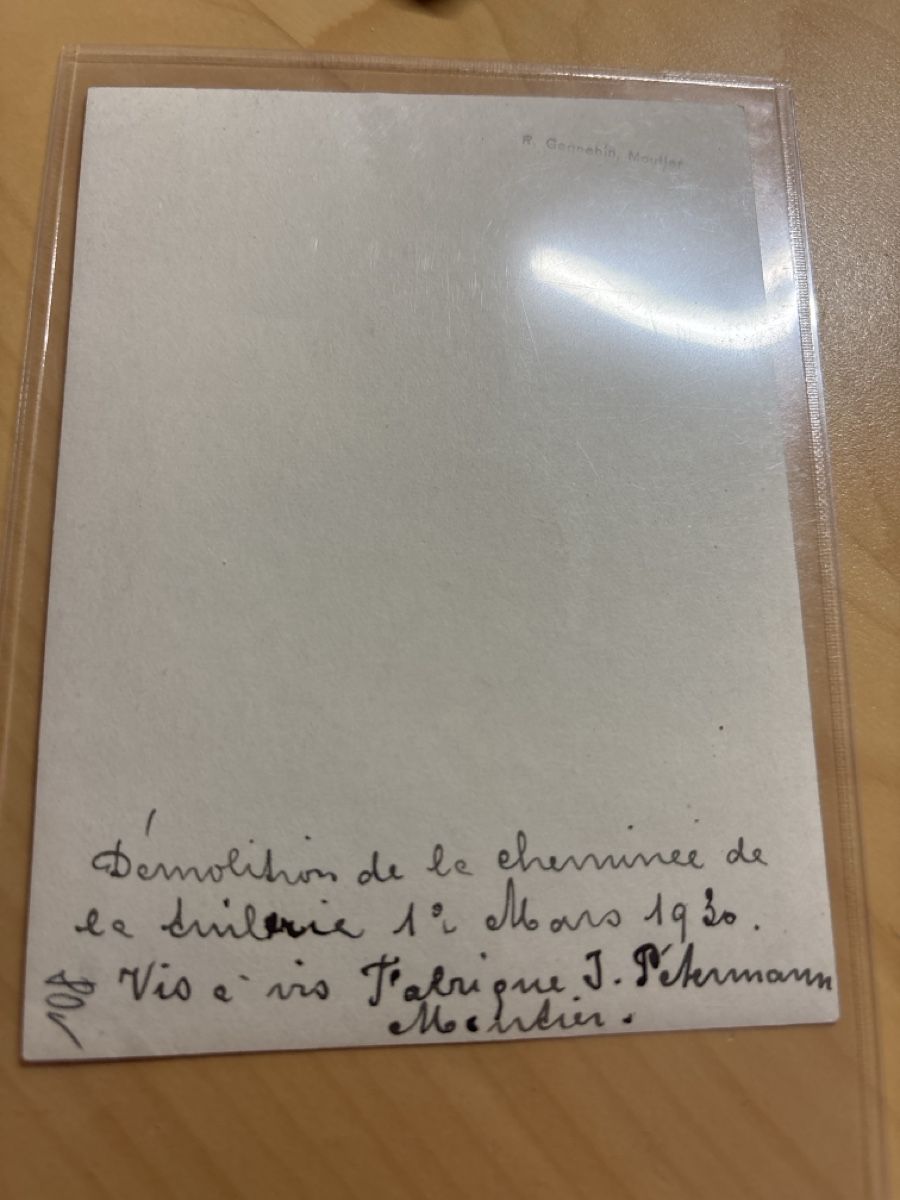 R. Gonnehin, Moutier
Démolition de la cheminée de
la tuilerie 1er Mars 1930.
Vis à vis Fabrique J. Pétermann
Moutier.
108